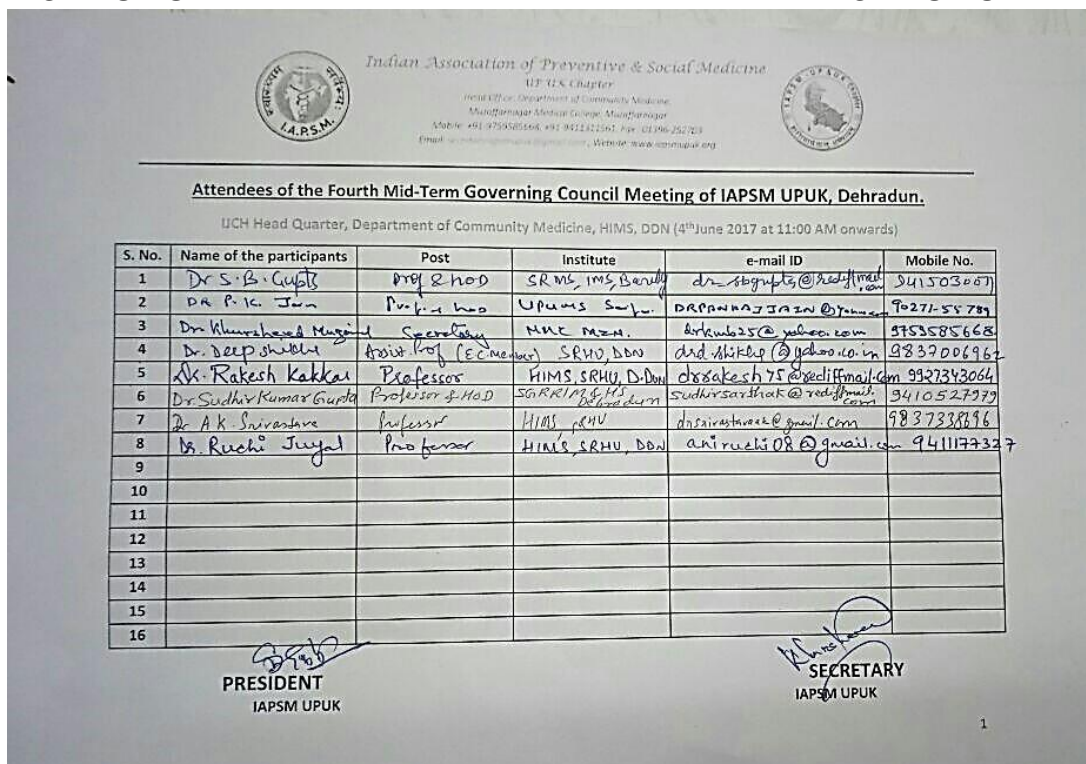 I.A.P.S.M.
Indian Association of Preventive & Social Medicine
UP UK Chapter
Head Office: Department of Community Medicine
Muzaffarnagar Medical College, Muzaffarnagar
Mobile: +91-9759585668, +91-9411321561, Fax: 01396-252703
Email: , Website: www.iapsmupuk.org
Attendees of the Fourth Mid-Term Governing Council Meeting of IAPSM UPUK, Dehradun.
UCH Head Quarter, Department of Community Medicine, HIMS, DDN (4th June 2017 at 11:00 AM onwards)
S. No. Name of the participants Post Institute e-mail ID Mobile No.
1 Dr S.B. Gupta Prof & HOD SRMS, IMS, Bareilly dr_sbgupta@rediffmail.com
2 DR P.K. Jain Prof & HOD UPUMS DRPANKAJJAIN@yahoo.com 90271-55789
3 Dr. Khursheed Secretary MMC MZN. drkmb25@yahoo.com 9759585668
4 Dr. Deep shikha Assist. Prof (EC Member) SRHU, DDN drd.shikha@yahoo.co.in 9837006962
5 Dr. Rakesh Kakkar Professor HIMS, SRHU, D.Dun drrakesh75@rediffmail.com 9927343064
6 Dr. Sudhir Kumar Gupta Professor & HOD SGRRIM&HS Dehradun sudhirsarthak@rediffmail.com 9410527979
7 Dr A K. Srivastava Professor HIMS SRHU 9837338696
8 Dr. Ruchi Juyal Professor HIMS, SRHU, DDN aniruchi08@gmail.com 9411177327
9
10
11
12
13
14
15
16
PRESIDENT SECRETARY
IAPSM UPUK IAPSM UPUK
1